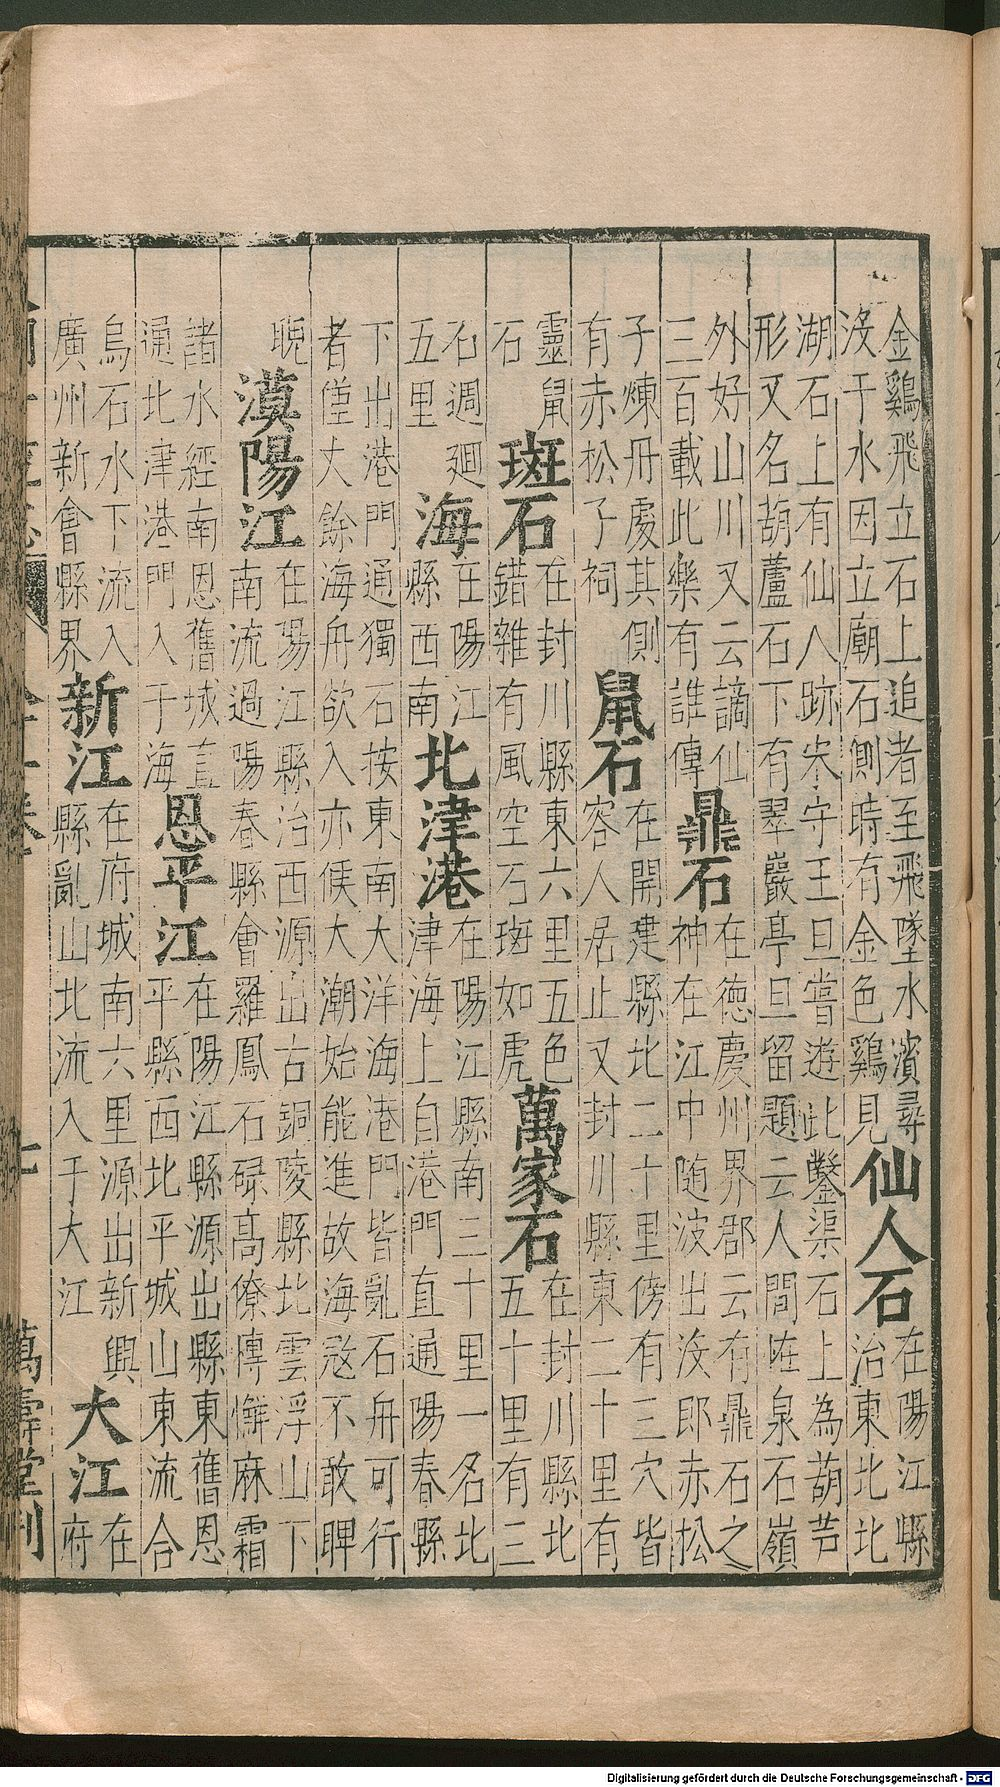 金鷄飛立石上追者至飛墜水濱尋
没于水因立廟石側時有金色鷄見
仙人石
在陽江縣
治東北北
湖石上有仙人跡宋守王旦嘗遊此鑿渠石上為葫芦
形又名葫蘆石下有翠巖亭旦留題云人間咗泉石嶺
外好山川又云謫仙
三百載此樂有誰傳
鼎石
在德慶州界郡云有鼎石之
神在江中随波出没郎赤松
子煉丹處其側
有赤松子祠
鼠石
在開建縣北二十里傍有三穴皆
容人居止又封川縣東二十里有
靈鼠
石
斑石
在封川縣東六里五色
錯雜有風空石斑如虎
萬家石
在封川縣北
五十里有三
石週廻
五里
海
在陽江
縣西南
北津港
在陽江縣南三十里一名北
津海上自港門直通陽春縣
下出港門通獨石按東南大洋海港門皆亂石舟可行
者僅丈餘海舟欲入亦候大潮始能進故海寇不敢睥
睨
漠陽江
在陽江縣治西源出古銅陵縣北雲浮山下
南流過陽春縣會羅鳳石碌高僚博懈麻霜
諸水經南恩舊城直
通北津港門入于海
恩平江
在陽江縣源出縣東舊恩
平縣西北平城山東流合
烏石水下流入
廣州新會縣界
新江
在府城南六里源出新興
縣亂山北流入于大江
大江
在
府
萬壽堂刊
Digitalisierung gefördert durch die Deutsche Forschungsgemeinschaft - DFG